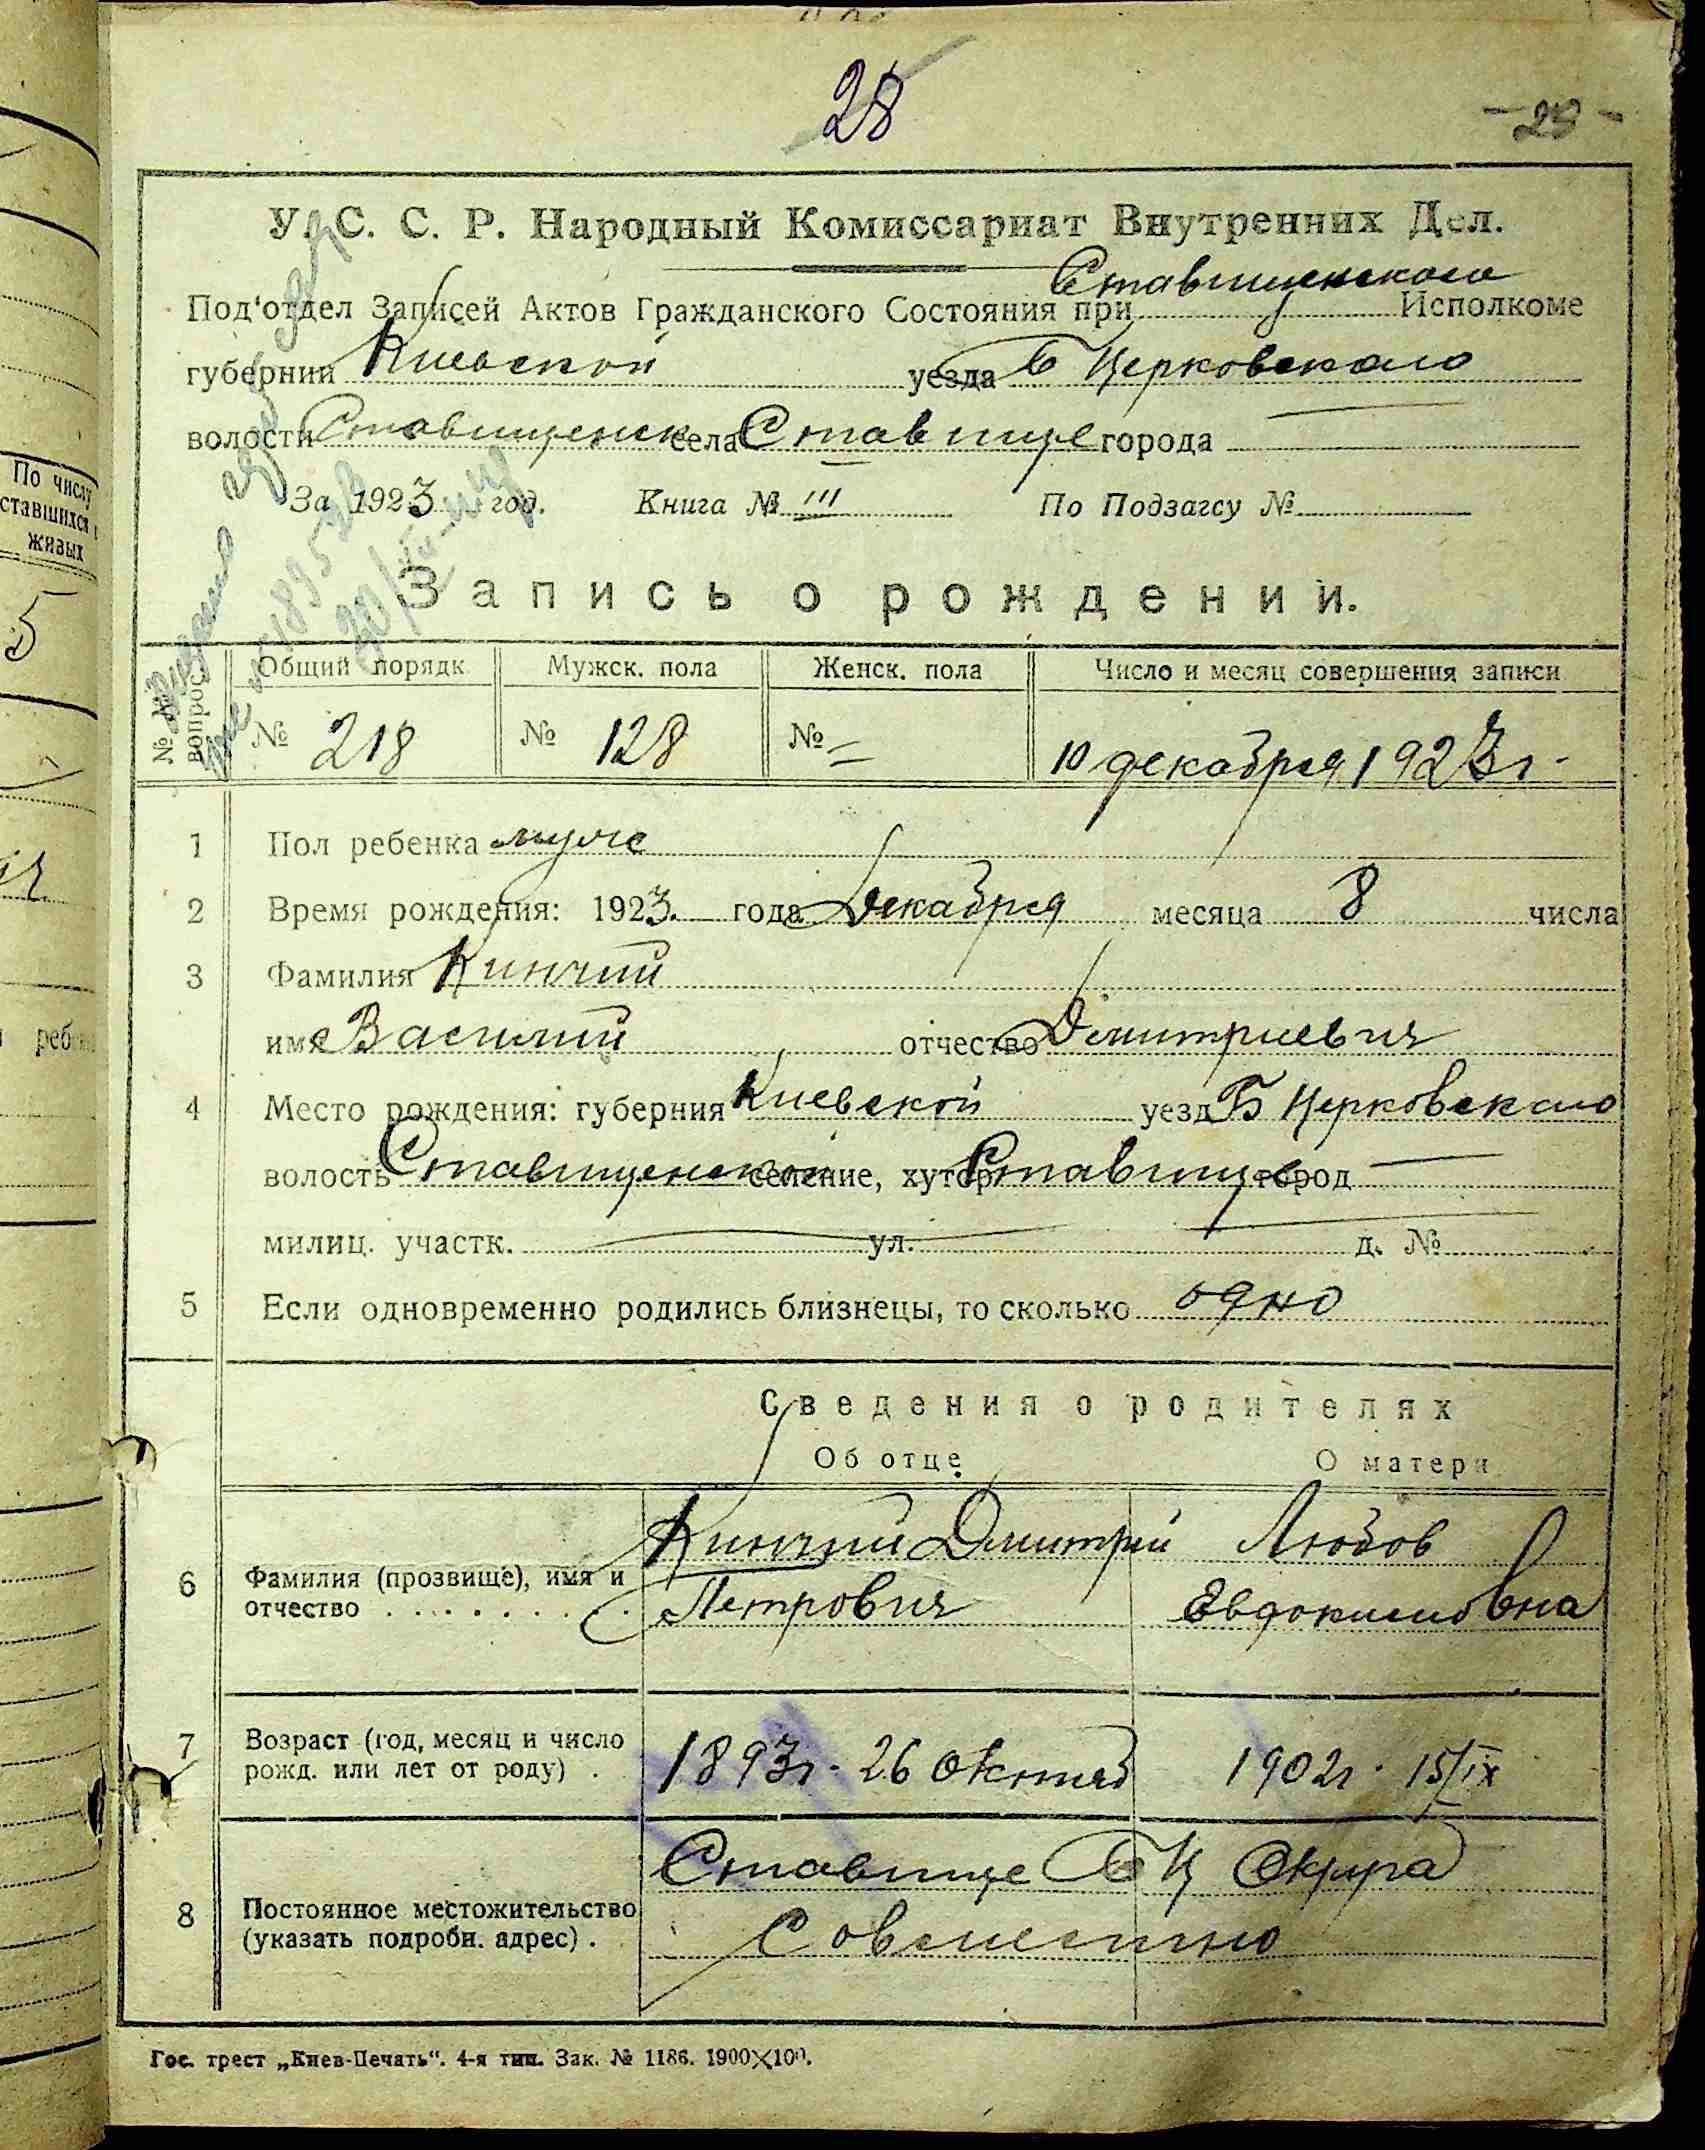 28
- 29 -
У. С. С. Р. Народный Комиссариат Внутренних Дел.
Под'отдел Записей Актов Гражданского Состояния при Ставищенского Исполкоме
губернии Киевской уезда Б Церковского
волости Ставищенск села Ставище города —
За 1923 год. Книга № III По Подзагсу №
Запись о рождении.
№№ вопрос. Общий порядк. Мужск. пола Женск. пола Число и месяц совершения записи
№ 218 № 128 № — 10 декабря 1923 г.
1 Пол ребенка муже
2 Время рождения: 1923. года Декабря месяца 8 числа
3 Фамилия Кинчий
имя Василий отчество Дмитриевич
4 Место рождения: губерния Киевской уезд Б Церковского
волость Ставищенской селение, хутор Ставище город —
милиц. участк. — ул. — д. №
5 Если одновременно родились близнецы, то сколько одно
Сведения о родителях
Об отце О матери
6 Фамилия (прозвище), имя и отчество
Кинчий Дмитрий Любов
Петрович Евдокимовна
7 Возраст (год, месяц и число рожд. или лет от роду) .
1893 г. 26 Октяб 1902 г. 15/IX
8 Постоянное местожительство (указать подробн. адрес) .
Ставище Б Ц Округа
Совместно
Гос. трест „Киев-Печать“. 4-я тип. Зак. № 1186. 1900×100.
По числу
ставшихся в
живых
5
ребен